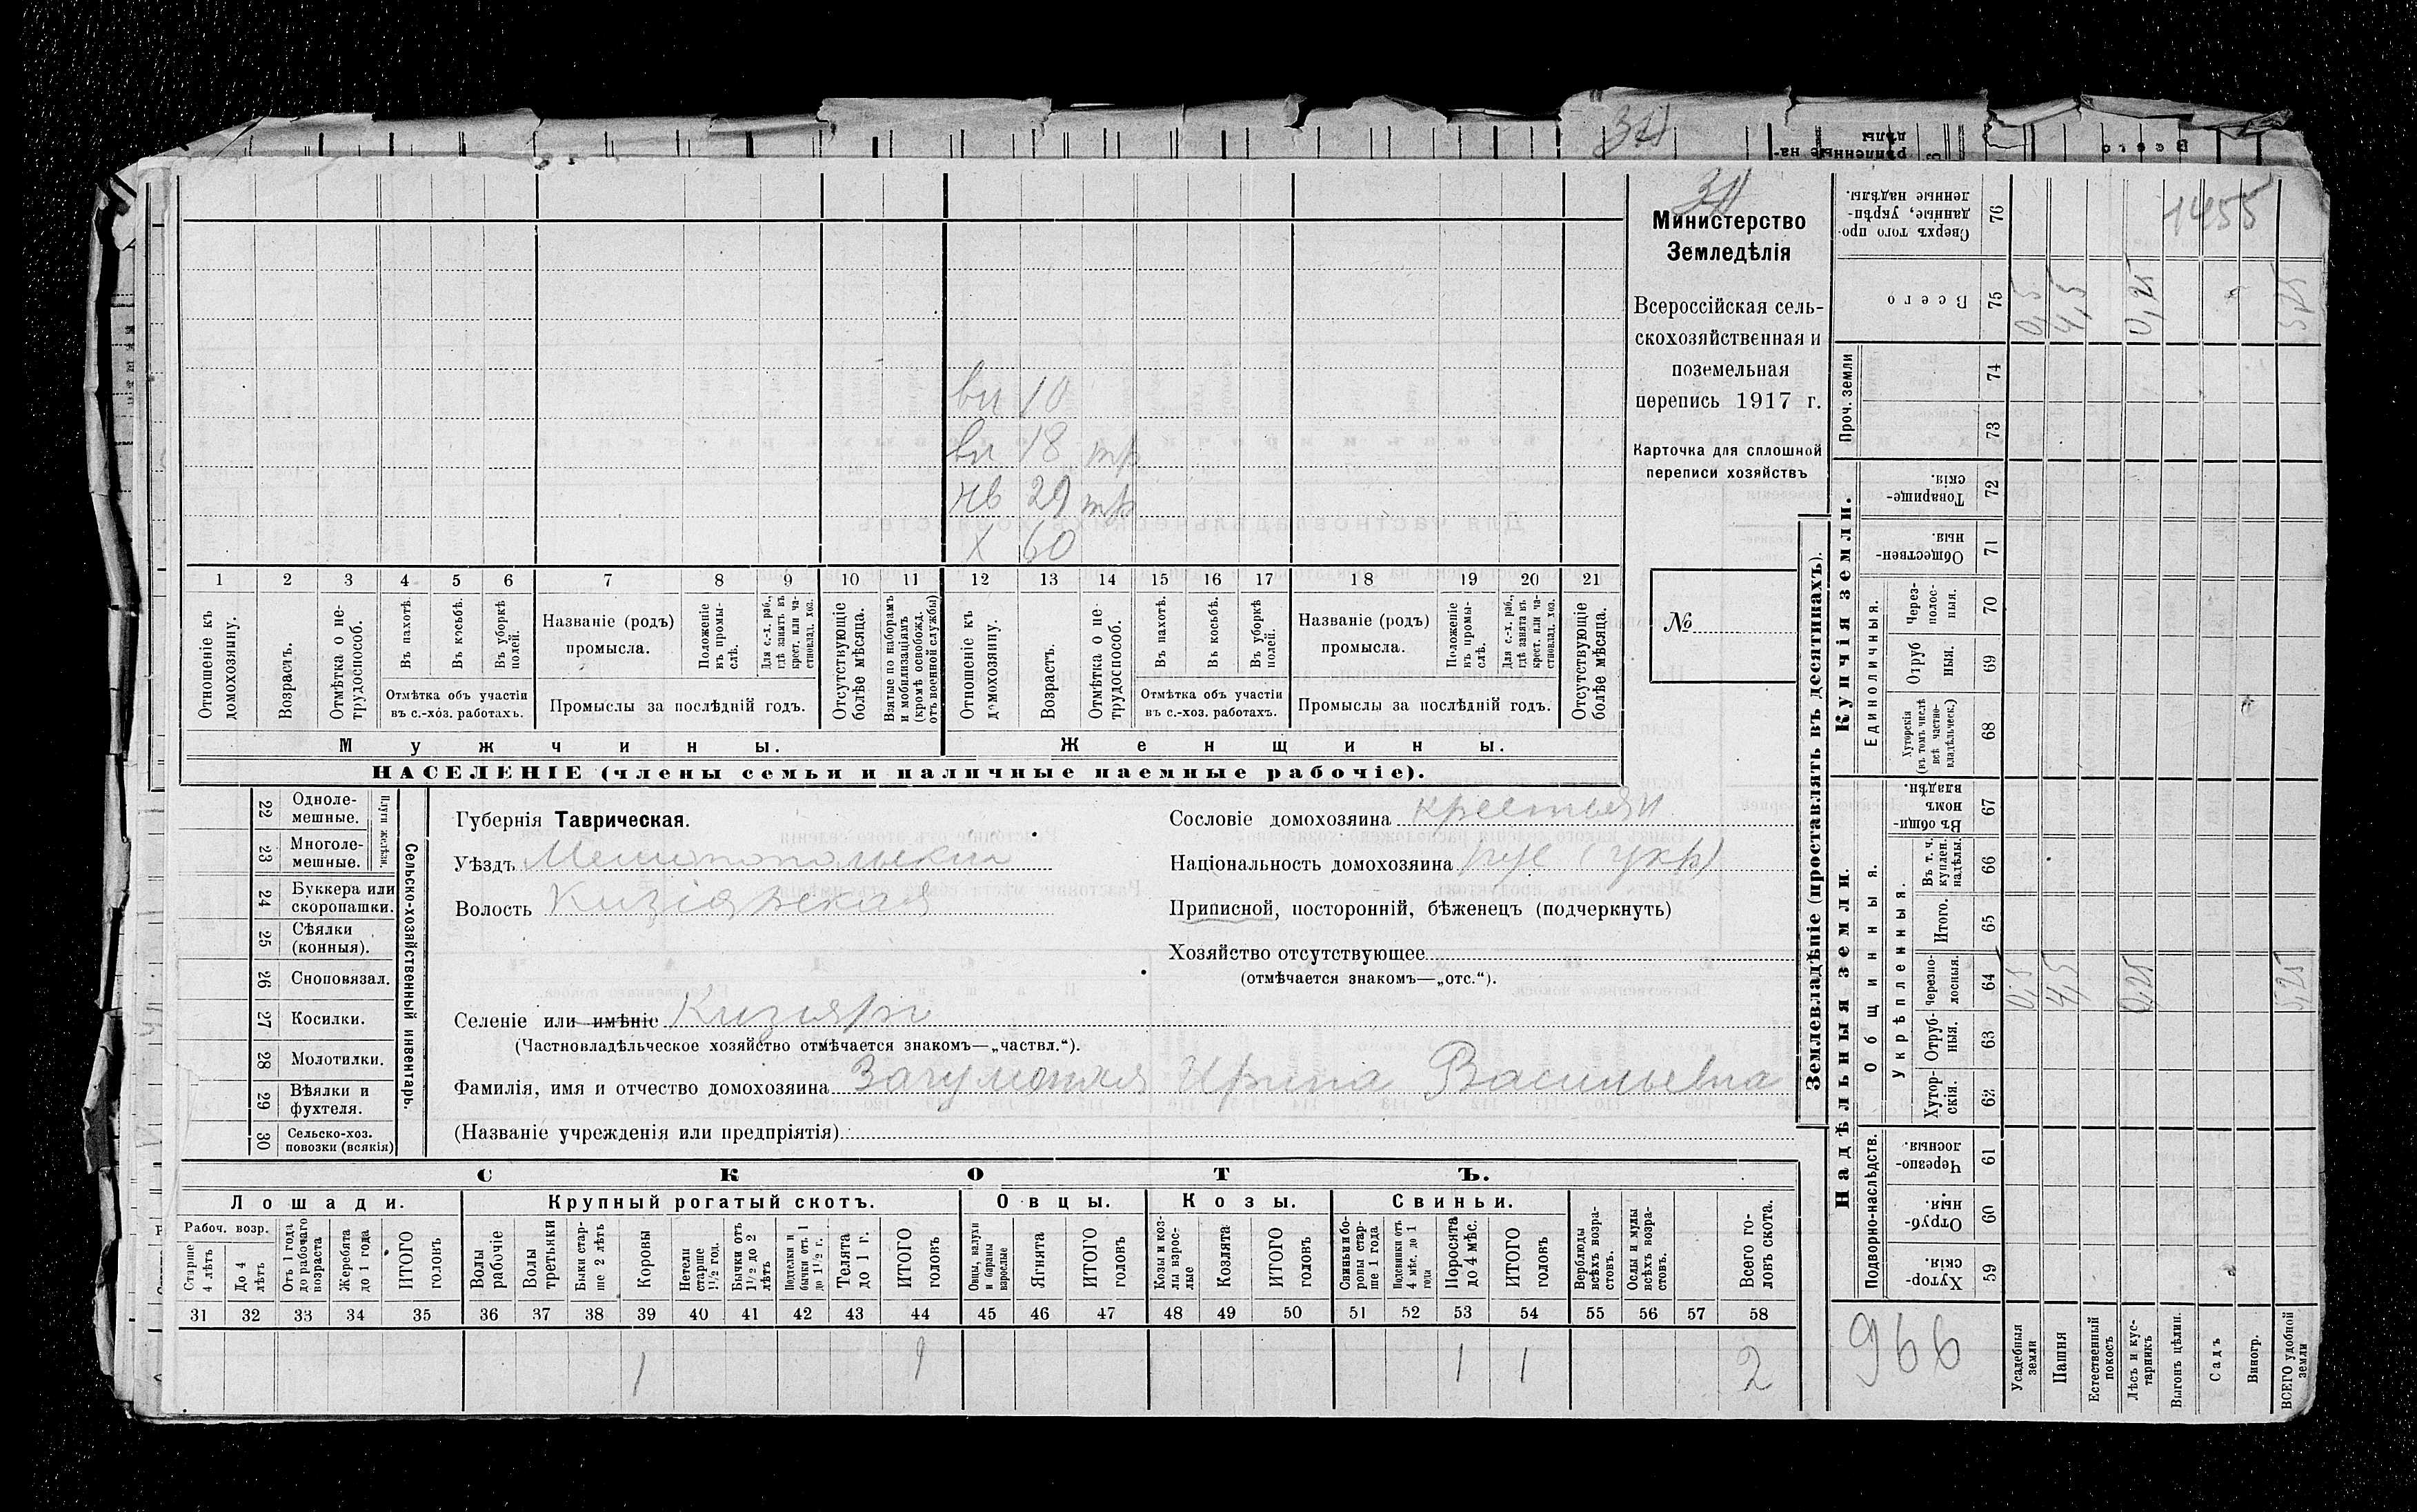 31
31
Министерство
Земледѣлія
Всероссійская сель-
скохозяйственная и
поземельная
перепись 1917 г.
Карточка для сплошной
переписи хозяйствъ
№
вн 10
вн 18 тр
нв 29 тр
х 60
1 2 3 4 5 6 7 8 9 10 11 12 13 14 15 16 17 18 19 20 21
Отношеніе къ домохозяину.
Возрастъ.
Отмѣтка о не-трудоспособ.
Въ пахотѣ.
Въ косьбѣ.
Въ уборкѣ полей.
Отмѣтка объ участіи
въ с.-хоз. работахъ.
Названіе (родъ)
промысла.
Положеніе въ промы-слѣ.
Для с.-х. раб., гдѣ занятъ въ крест. или ча-стновлад. хоз.
Промыслы за послѣдній годъ.
Отсутствующіе болѣе мѣсяца.
Взятые по наборамъ и мобилизаціямъ (кромѣ освобожд. отъ военной службы)
Отношеніе къ домохозяину.
Возрастъ.
Отмѣтка о не-трудоспособ.
Въ пахотѣ.
Въ косьбѣ.
Въ уборкѣ полей.
Отмѣтка объ участіи
въ с.-хоз. работахъ.
Названіе (родъ)
промысла.
Положеніе въ промы-слѣ.
Для с.-х. раб., гдѣ занята въ крест. или ча-стновлад. хоз.
Промыслы за послѣдній годъ.
Отсутствующіе болѣе мѣсяца.
Мужчины.
Женщины.
НАСЕЛЕНІЕ (члены семьи и наличные наемные рабочіе).
22 Одноле-мешные.
23 Многоле-мешные.
Плуги желѣзн.
24 Буккера или скоропашки.
25 Сѣялки (конныя).
26 Сноповязал.
27 Косилки.
28 Молотилки.
29 Вѣялки и фухтеля.
30 Сельско-хоз. повозки (всякія)
Сельско-хозяйственный инвентарь.
Губернія Таврическая.
Уѣздъ Мелитопольскій
Волость Кизіярская
Селеніе или имѣніе Кизияръ
(Частновладѣльческое хозяйство отмѣчается знакомъ—„частвл.“).
Фамилія, имя и отчество домохозяина Ирина Васильевна
(Названіе учрежденія или предпріятія)
Сословіе домохозяина крестьян
Національность домохозяина рус (укр)
Приписной, посторонній, бѣженецъ (подчеркнуть)
Хозяйство отсутствующее
(отмѣчается знакомъ—„отс.“).
СКОТЪ.
Лошади.
Крупный рогатый скотъ.
Овцы.
Козы.
Свиньи.
Рабоч. возр.
Старше 4 лѣтъ
До 4 лѣтъ
Отъ 1 года до рабочаго возраста
Жеребята до 1 года
ИТОГО головъ
Волы рабочіе
Волы третьяки
Быки стар-ше 2 лѣтъ
Коровы
Нетели старше 1½ год.
Бычки отъ 1½ до 2 лѣтъ
Подтелки и бычки отъ 1 до 1½ г.
Телята до 1 г.
ИТОГО головъ
Овцы, валухи и бараны взрослые
Ягнята
ИТОГО головъ
Козы и коз-лы взрос-лые
Козлята
ИТОГО головъ
Свиньи и бо-ровы стар-ше 1 года
Подсвинки отъ 4 мѣс. до 1 года
Поросята до 4 мѣс.
ИТОГО головъ
Верблюды всѣхъ возра-стовъ.
Ослы и мулы всѣхъ возра-стовъ.
Всего го-ловъ скота.
31 32 33 34 35 36 37 38 39 40 41 42 43 44 45 46 47 48 49 50 51 52 53 54 55 56 57 58
1 1 1 1 2
Землевладѣніе (проставлять въ десятинахъ).
Надѣльныя земли.
Купчія земли.
Проч. земли
Подворно-наслѣдств.
Общинныя.
Укрѣпленныя.
Единоличныя.
Сверхъ того про-данные, укрѣп-ленные надѣлы. 76
1455
Всего 75 0,5 4,5 0,25 5,25
74
73
Товарище-скія. 72
Обществен-ныя. 71
Через-полос-ныя. 70
Отруб ныя. 69
Хуторскія (въ томъ числѣ всѣ частно-владѣльческ.) 68
Въ общи-номъ владѣн. 67
Въ т. ч. куплен. надѣлы. 66
Итого. 65
Черезпо-лосныя. 64 0,5 4,5 0,25 5,25
Отруб-ныя. 63
Хутор-скія. 62
Черезпо-лосныя. 61
Отруб-ныя. 60
Хутор-скія. 59
966
Усадебныя земли
Пашня
Естественный покосъ
Лѣсъ и кус-тарникъ
Выгонъ цѣлин.
Садъ
Виногр.
ВСЕГО удобной земли